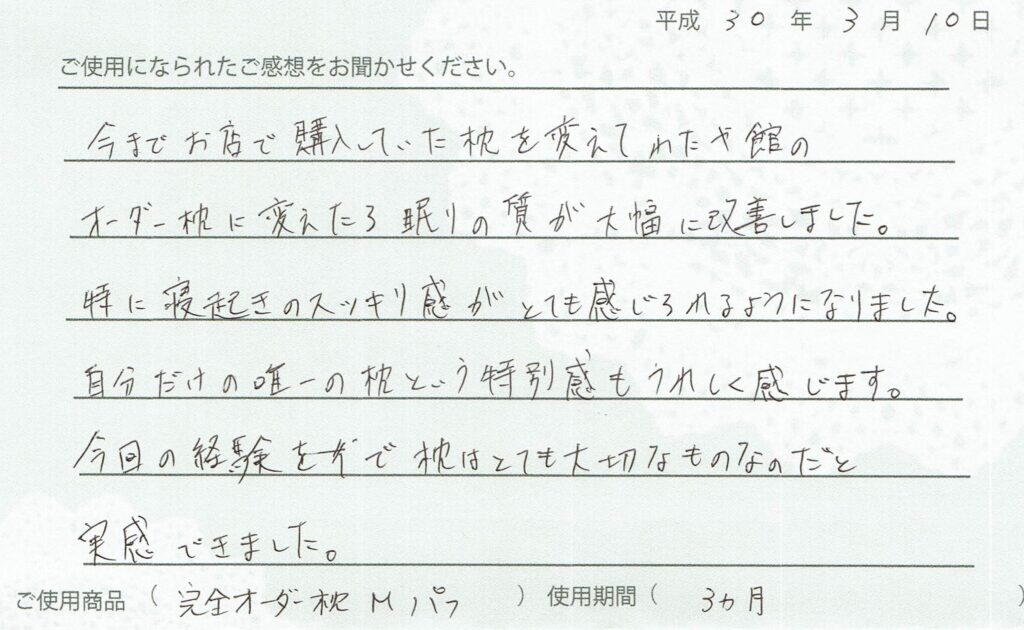 平成 30 年 3 月 10 日
ご使用になられたご感想をお聞かせください。
今までお店で購入していた枕を変えてわたや館の
オーダー枕に変えたら眠りの質が大幅に改善しました。
特に寝起きのスッキリ感がとても感じられるようになりました。
自分だけの唯一の枕という特別感もうれしく感じます。
今回の経験を で枕はとても大切なものなのだと
実感できました。
ご使用商品 ( 完全オーダー枕 Mパフ ) 使用期間 ( 3ヵ月 )